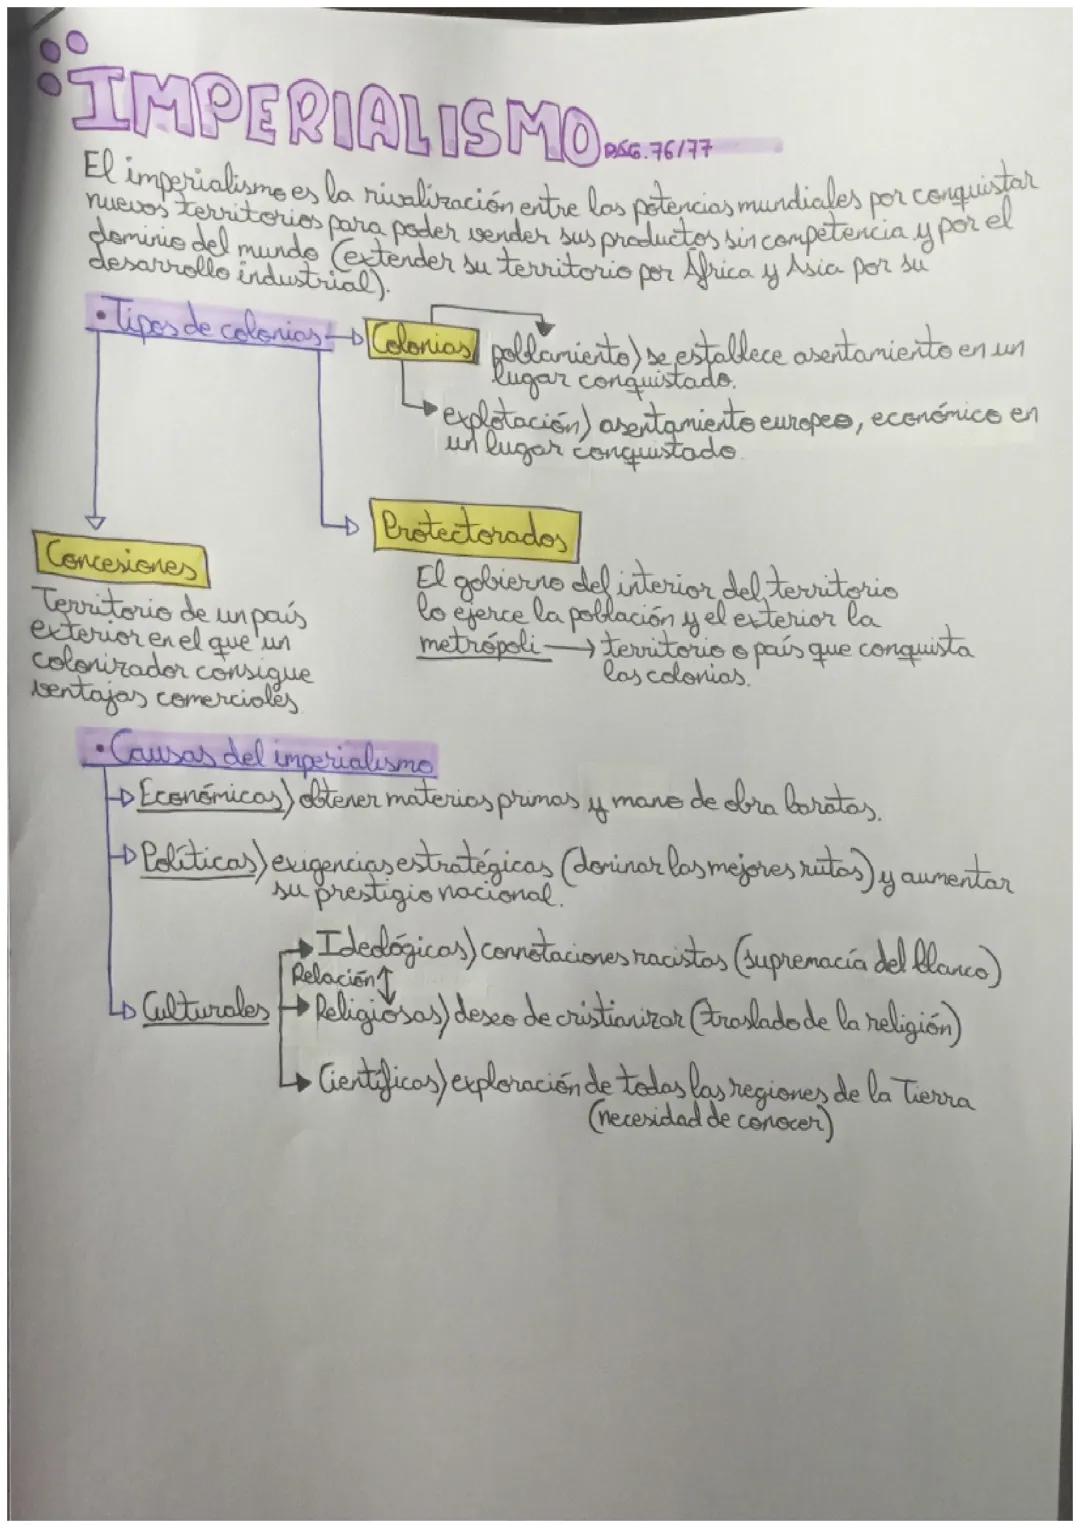 IMPERIALISMO PÁG. 76/77
El imperialismo es la rivalización entre las potencias mundiales por conquistar
nuevos territorios para poder vender sus productos sin competencia y por el
dominio del mundo (extender su territorio por África y Asia por su
desarrollo industrial).
• Tipos de colonias
Colonias
poblamiento) se establece asentamiento en un
lugar conquistado.
explotación) asentamiento europeo, económico en
un lugar conquistado.
Protectorados
El gobierno del interior del territorio
lo ejerce la población y el exterior la
metrópoli → territorio o país que conquista
las colonias.
Concesiones
Territorio de un país
exterior en el que un
colonizador consigue
ventajas comerciales
• Causas del imperialismo
Económicas) obtener materias primas y mano de obra baratas.
Políticas) exigencias estratégicas (dominar las mejores rutas) y aumentar
su prestigio nacional.
Culturales
Ideológicas) connotaciones racistas (supremacía del blanco)
Relación
Religiosas) deseo de cristianizar (traslado de la religión)
Científicas) exploración de todas las regiones de la Tierra
(necesidad de conocer)